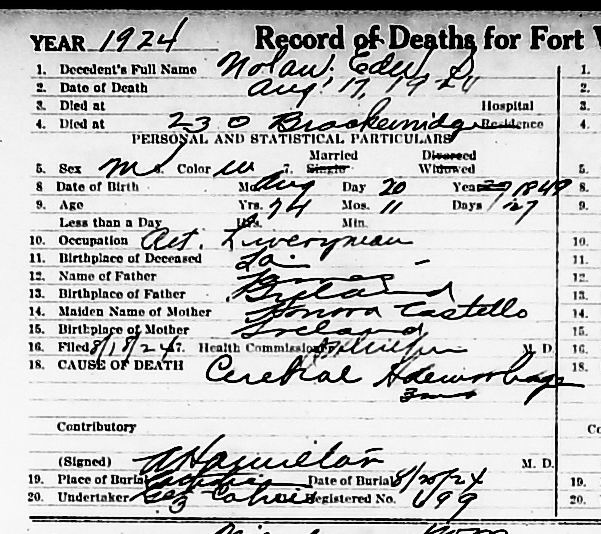 YEAR 1924 Record of Deaths for Fort
1. Decedent's Full Name Nolan, Edw D 1.
2. Date of Death Aug 17, 1924 2.
3. Died at Hospital 3.
4. Died at 230 Brackenridge Residence 4.
PERSONAL AND STATISTICAL PARTICULARS
Married Divorced
5. Sex M 6. Color W 7. Single Widowed 5.
8 Date of Birth Mo. Aug Day 20 Year 1849 8.
9. Age Yrs. 74 Mos. 11 Days 27 9.
Less than a Day Hrs. Min.
10. Occupation Ret. Liveryman 10.
11. Birthplace of Deceased 11.
12. Name of Father James 12.
13. Birthplace of Father Ireland 13.
14. Maiden Name of Mother Honora Castello 14.
15. Birthplace of Mother Ireland 15.
16. Filed 8/18/24 17. Health Commissioner M. D. 16.
18. CAUSE OF DEATH Cerebral Haemorrhage 18.
3 mos
Contributory Co
(Signed) Hamilton M. D.
19. Place of Burial Date of Burial 8/20/24 19.
20. Undertaker Registered No. 699 20.